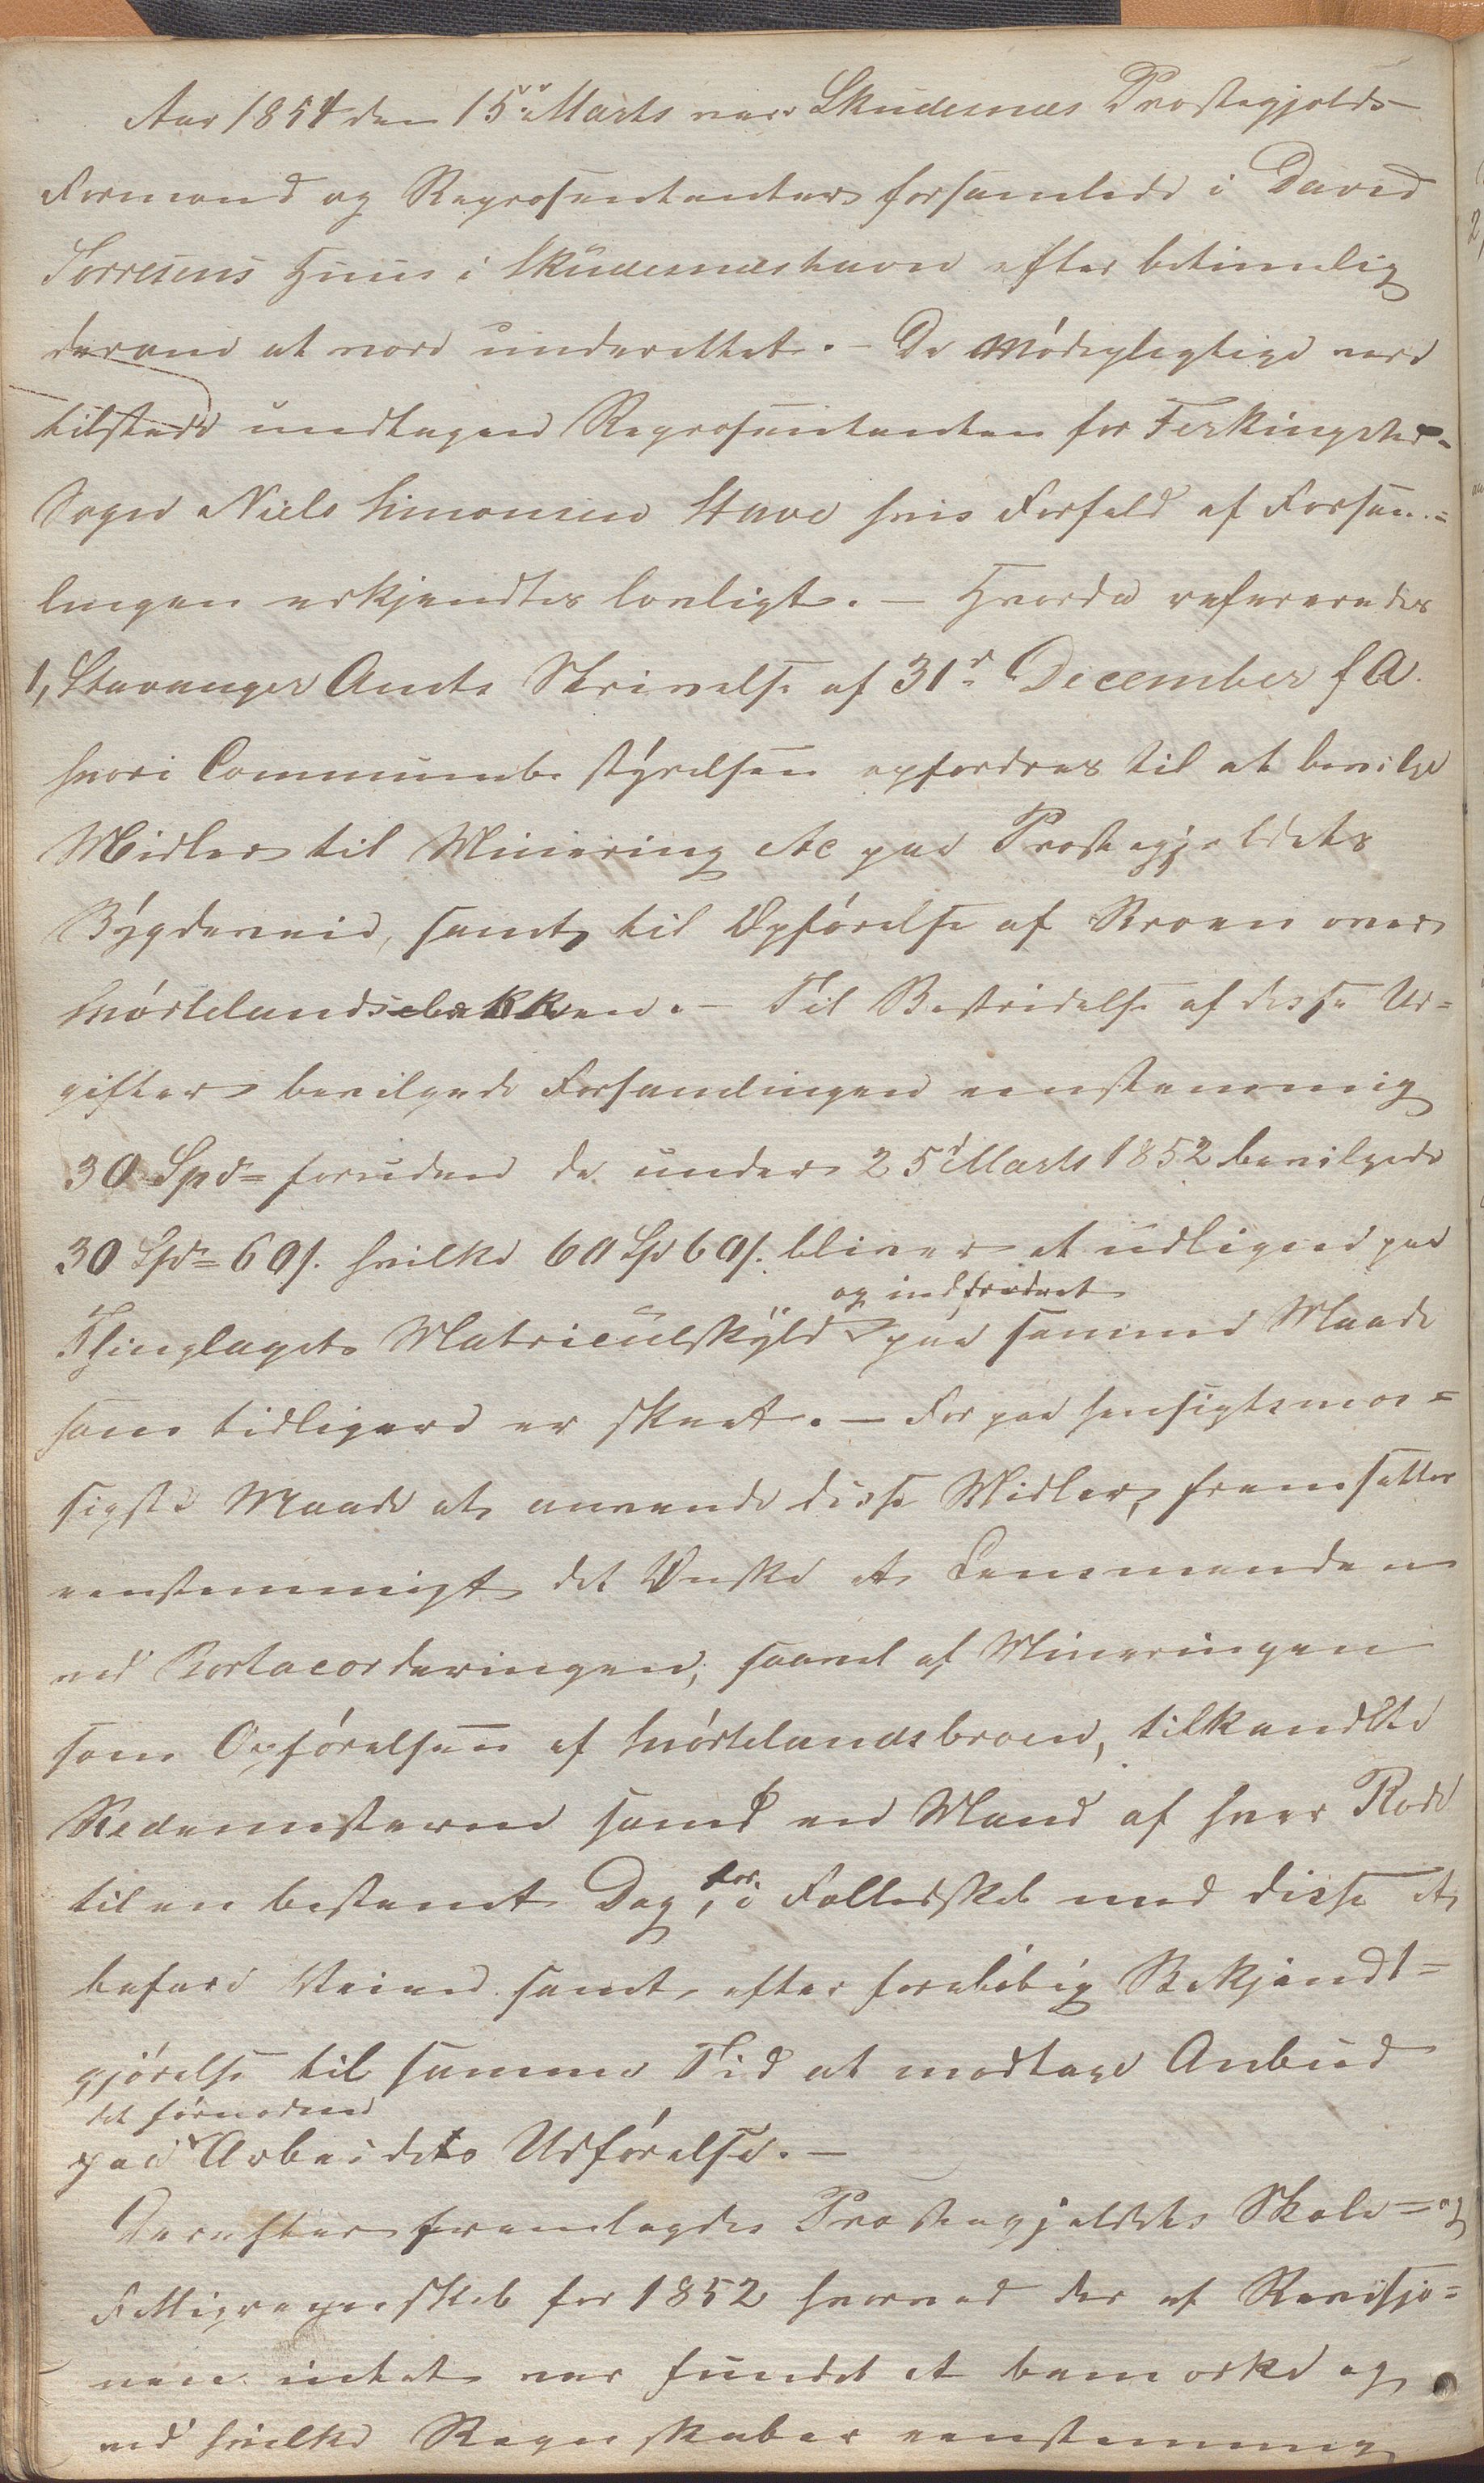 Aar 1854 den 15de Marts var Skudesnæs Præstegjelds-
Formænd og Repræsentanter forsamlede i David
Torresens Huus i Skudesnæshavn efter betimelig
derom at være underettet. – De Mødepligtige vare
tilstede undtagen Repræsentanten for Ferkingsted-
Sogn Niels Simonsen Stave hvis Forfald af Forsam=
lingen erkjendtes lovligt. – Hvorda refereredes
1, Stavanger Amts Skrivelse af 31te December f A.
hvori Communebestyrelsen opfordres til at bevilge
Midler til Minering etc paa Præstegjeldets
Bygdeveie, samt til Opførelse af Broen over
Snørtelandsbækken. – Til Bestridelse af disse Ud=
gifter bevilgede Forsamlingen eenstemmig
30 Spd= foruden de under 25d Marts 1852 bevilgede
30 Spd= 60 s. hvilke 60 Spd 60 s. bliver at udligne paa
og indfordret
Thinglagets Matriculskyld paa samme Maade
som tidligere er skeet. – For paa hensigtsmæs=
sigste Maade at anvende disse Midler, fremsattes
eenstemmigt det Ønske at Lensmanden
ved Bortacorderingen, saavel af Mineringen
som Opførelsen af Snørtelandsbroen, tilkaldte
Rodemesterne samt en Mand af hver Rode
til en bestemt Dag, for i Følledskab med disse at
befare Veiene samt, efter foreløbig Bekjendt=
gjørelse til samme Tid at modtage Anbud
det fornødne
paa Arbeidets Udførelse. –
Derefter fremlagdes Præstegjeldets Skole= og
Fattigregnskab for 1852 hvorved der af Revisjo=
nen intet var fundet at bemærke og
ved hvilke Regnskaber eenstemmig